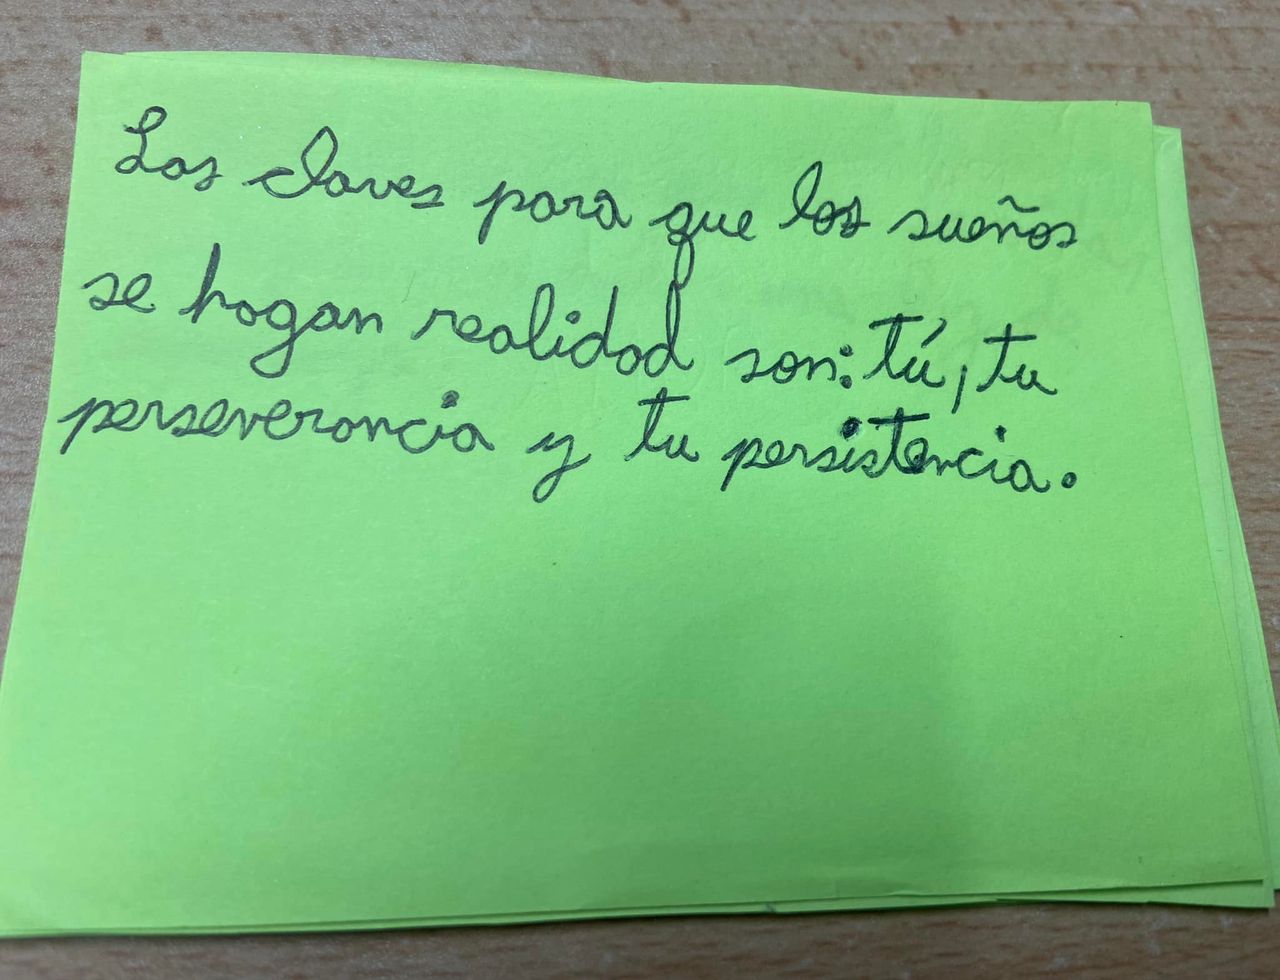 Las claves para que los sueños
se hagan realidad son: tú, tu
perseverancia y tu persistencia.